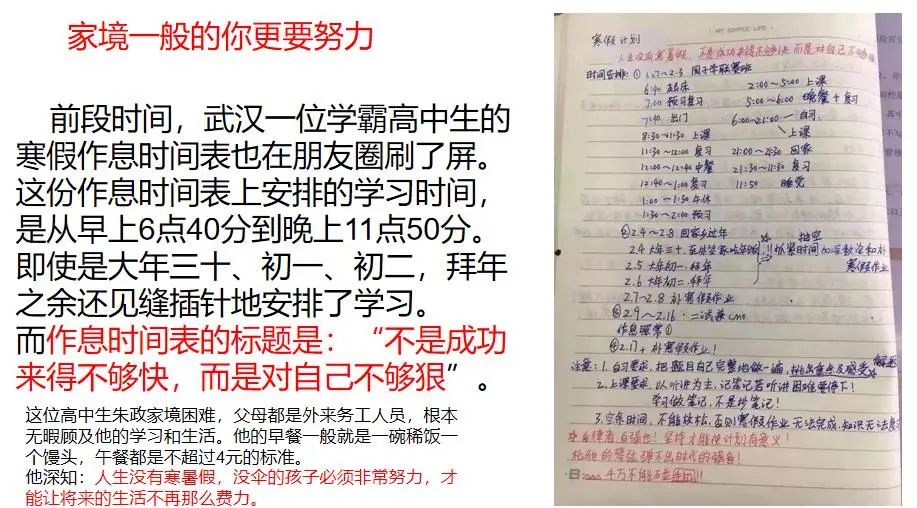 家境一般的你更要努力
前段时间，武汉一位学霸高中生的
寒假作息时间表也在朋友圈刷了屏。
这份作息时间表上安排的学习时间，
是从早上6点40分到晚上11点50分。
即使是大年三十、初一、初二，拜年
之余还见缝插针地安排了学习。
而作息时间表的标题是：“不是成功
来得不够快，而是对自己不够狠”。
这位高中生朱政家境困难，父母都是外来务工人员，根本
无暇顾及他的学习和生活。他的早餐一般就是一碗稀饭一
个馒头，午餐都是不超过4元的标准。
他深知：人生没有寒暑假，没伞的孩子必须非常努力，才
能让将来的生活不再那么费力。
· MY SIMPLE LIFE ·
寒假计划
人生没有寒暑假，不是成功来得不够快 而是对自己不够狠
时间安排：① 1.27～2.3 国子学联赛班
6:40 起床 2:00～5:00 上课
7:00 预习复习 5:00～6:00 晚餐+复习
7:40 出门 6:00～21:00 自习
上课
8:30～11:30 上课
11:30～12:00 复习 21:00～21:30 回家
12:00～12:40 中餐 21:30～11:30 复习
12:40～1:00 复习 11:50 睡觉
1:00～1:30 午休
1:30～2:00 预习
②2.4～2.8 回家乡过年 抽空
2.4 大年三十 抓紧时间 和补
2.5 大年初一 拜年 寒假作业
2.6 大年初二 拜年
2.7～2.8 补寒假作业
③2.9～2.16 二试兼cmo
作息照常①
④2.17+ 补寒假作业！
注意：1. 自习要求，把题目自己完整地做一遍，挑出重点及感受
2. 上课要求，以听讲为主，记笔记若听讲困难要停下！
学习做笔记，不是抄笔记！
3. 空余时间，不能放松，否则寒假作业无法完成，知识无法复习
自律者，自强也！坚持才能使计划有意义！
的琴弦弹不出时代的强音！
千万不能